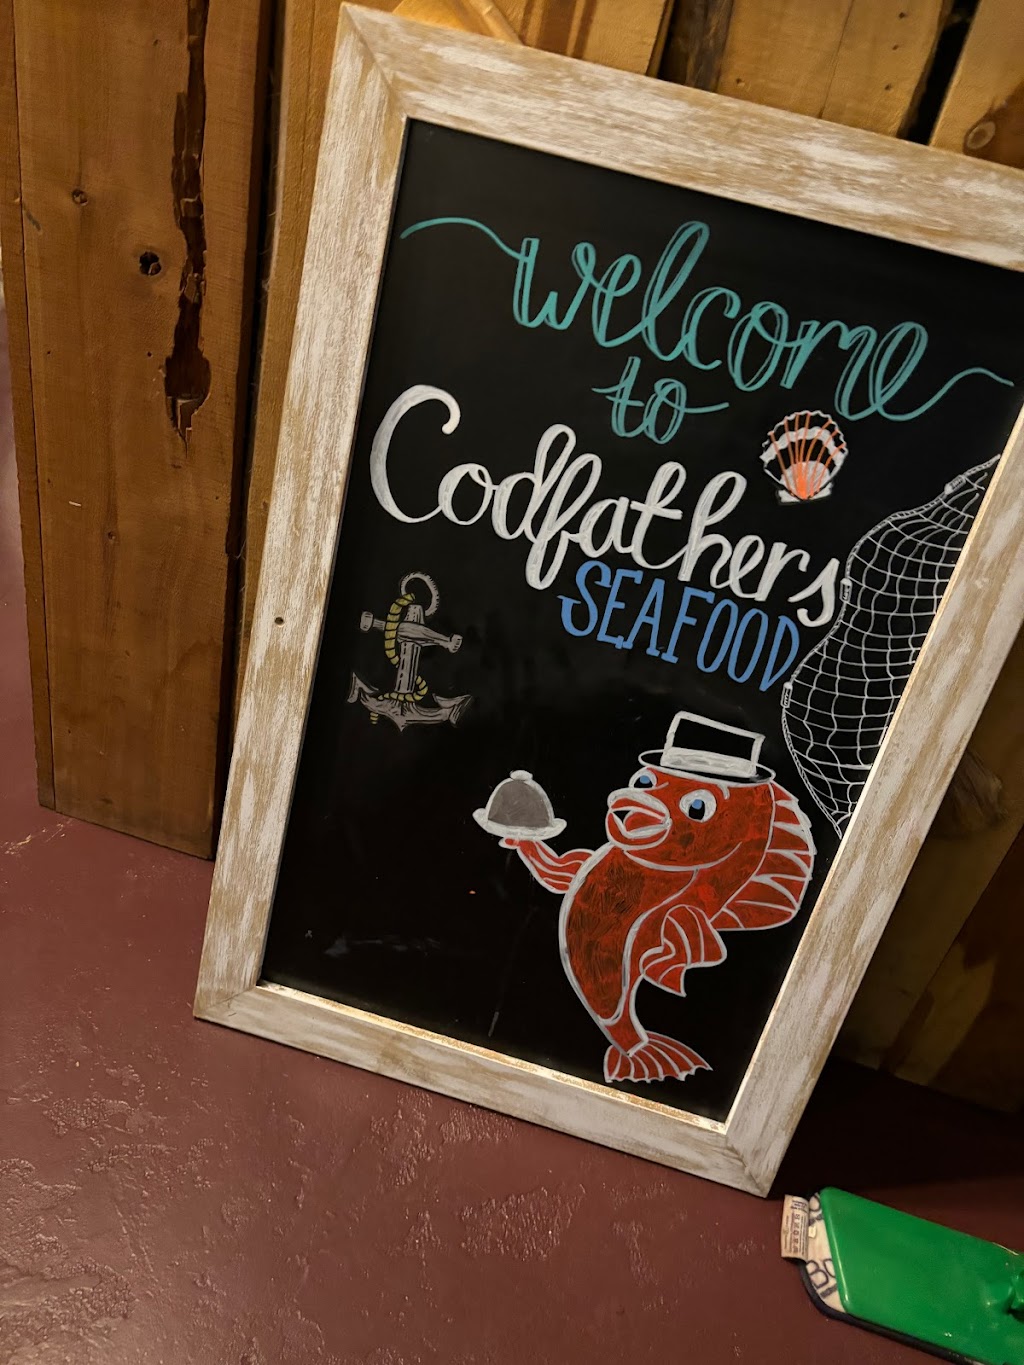 welcome
to
Codfathers
SEAFOOD